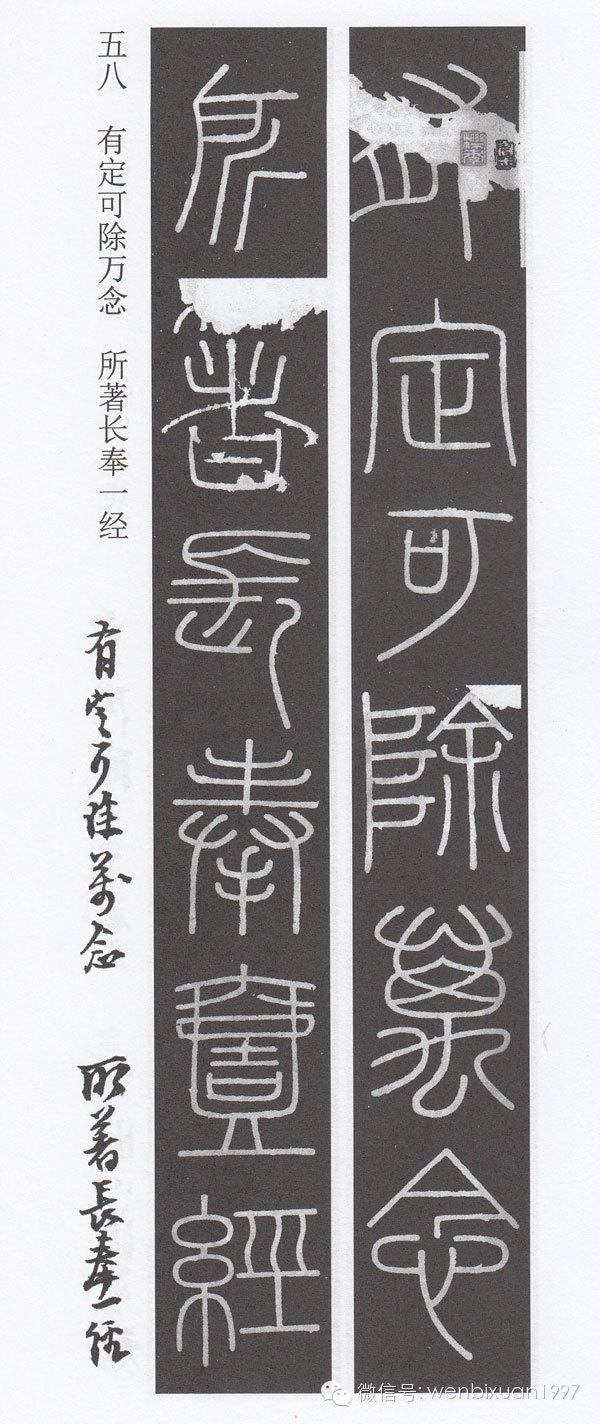 定可除萬念
所著長奉壹經
五八 有定可除万念 所著长奉一经
有定可除萬念 所著長奉一經
微信号: wenbixuan1997